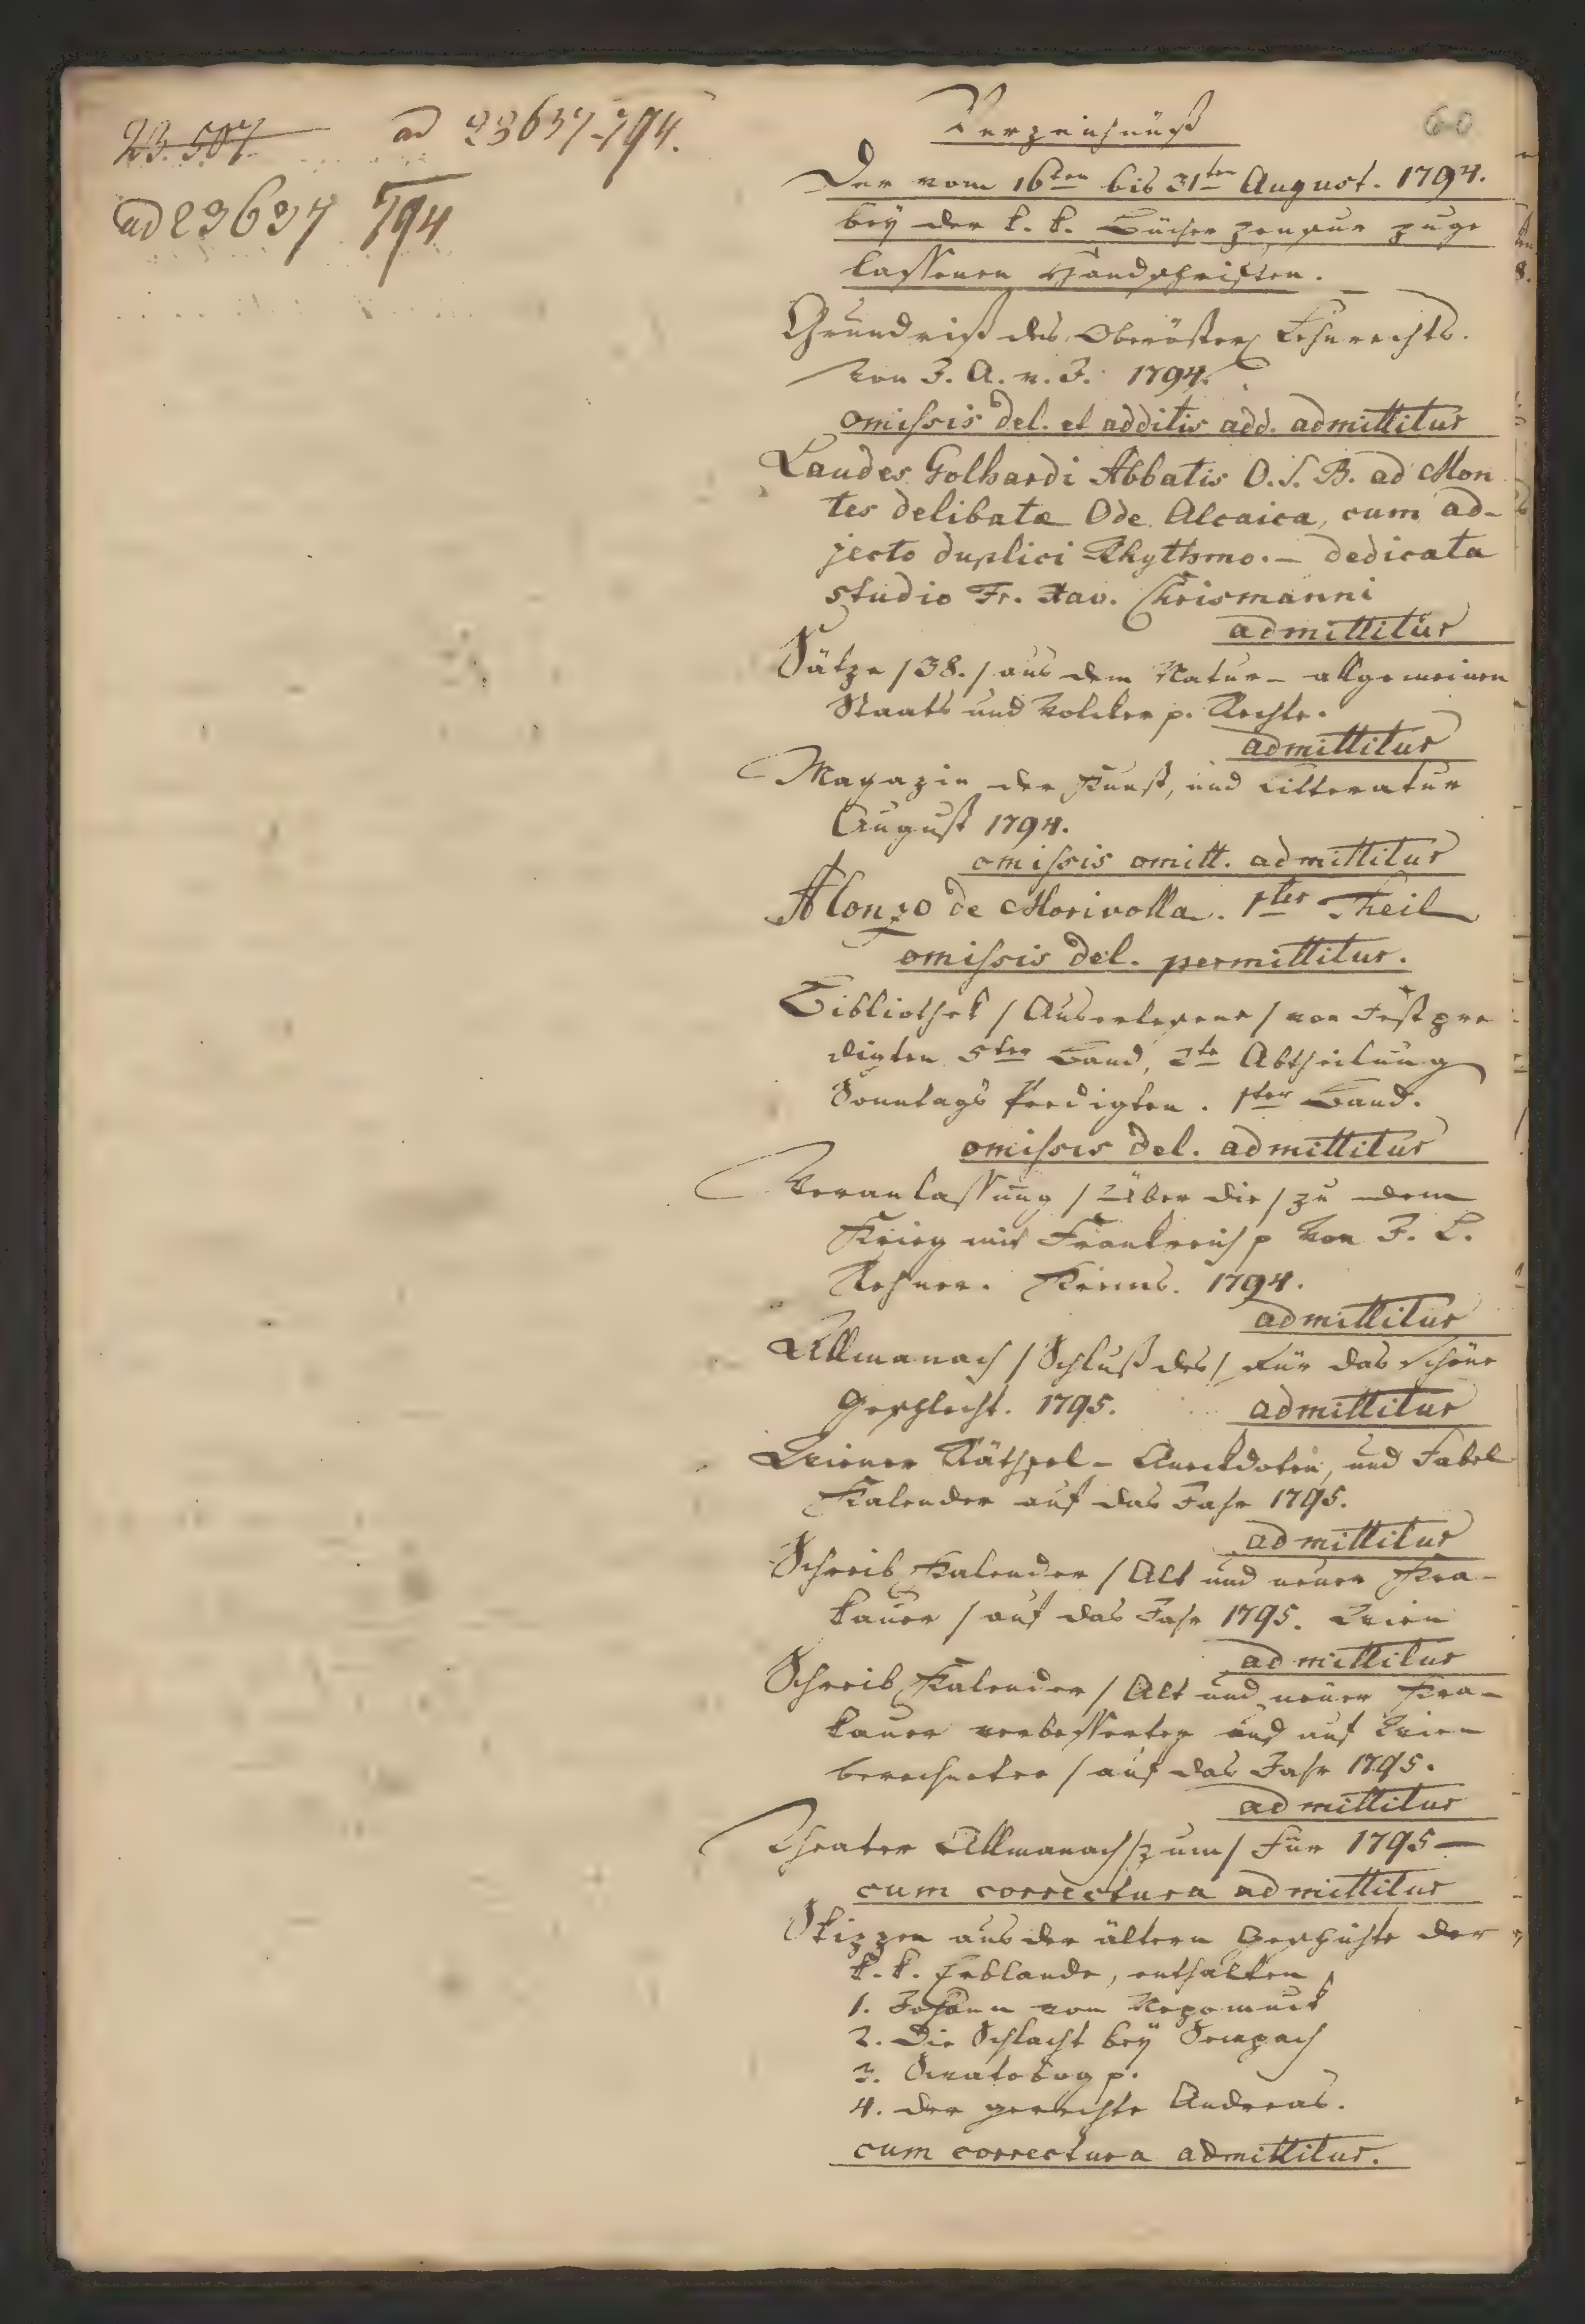 23.507
ad 23637-794.
ad 23637 794
60
Verzeichnüß
Der vom 16ten bis 31ten August. 1794.
bey der k. k. Bücher Zensur zuge
lassenen Handschriften.
Grundriß des Oberösterr Lehnrechts.
von J. A. v. J. 1794.
omissis del. et additis add. admittitur
Laudes Golhardi Abbatis O. S. B. ad Mon
tes delibatæ Ode Alcaica, cum ad-
jecto duplici Rhythmo. – dedicata
studio Fr. Xav. Chrismanni
admittitur
Sätze /38./ aus dem Natur- allgemeinen
Staats und Volcker p. Rechte.
admittitur
Magazin der Kunst, und Litteratur
August 1794.
omissis omitt. admittitur
Alonzo de Morivolla. 1ter Theil
omissis del. permittitur.
Bibliothek / Auserlesene / von Festpre
digten 5ter Band, 2te Abtheilung
Sonntags Predigten. 1ter Band.
omissis del. admittitur
Veranlassung / Über die / zu dem
Krieg mit Frankreich p von J. L.
Krems. 1794.
admittitur
Allmanach / Schluß des / für das schöne
Geschlecht. 1795. admittitur
Wiener Räthsel- Aneckdoten, und Fabel
Kalender auf das Jahr 1795.
admittitur
Schreib Kalender / Alt und neuer Kra-
kauer / auf das Jahr 1795. Wien
admittitur
Schreib Kalender / Alt und neuer Kra-
kauer verbesserter und auf Wien
berechneter / auf das Jahr 1795.
admittitur
Theater Allmanach / zum / für 1795 —
cum correctura admittitur
Skizzen aus der ältern Geschichte der
k. k. Erblande, enthalten
1. Johann von Nepomuck
2. Die Schlacht bey Sempach
3. Swatobog p.
4. der gerechte Andreas.
cum correctura admittitur.